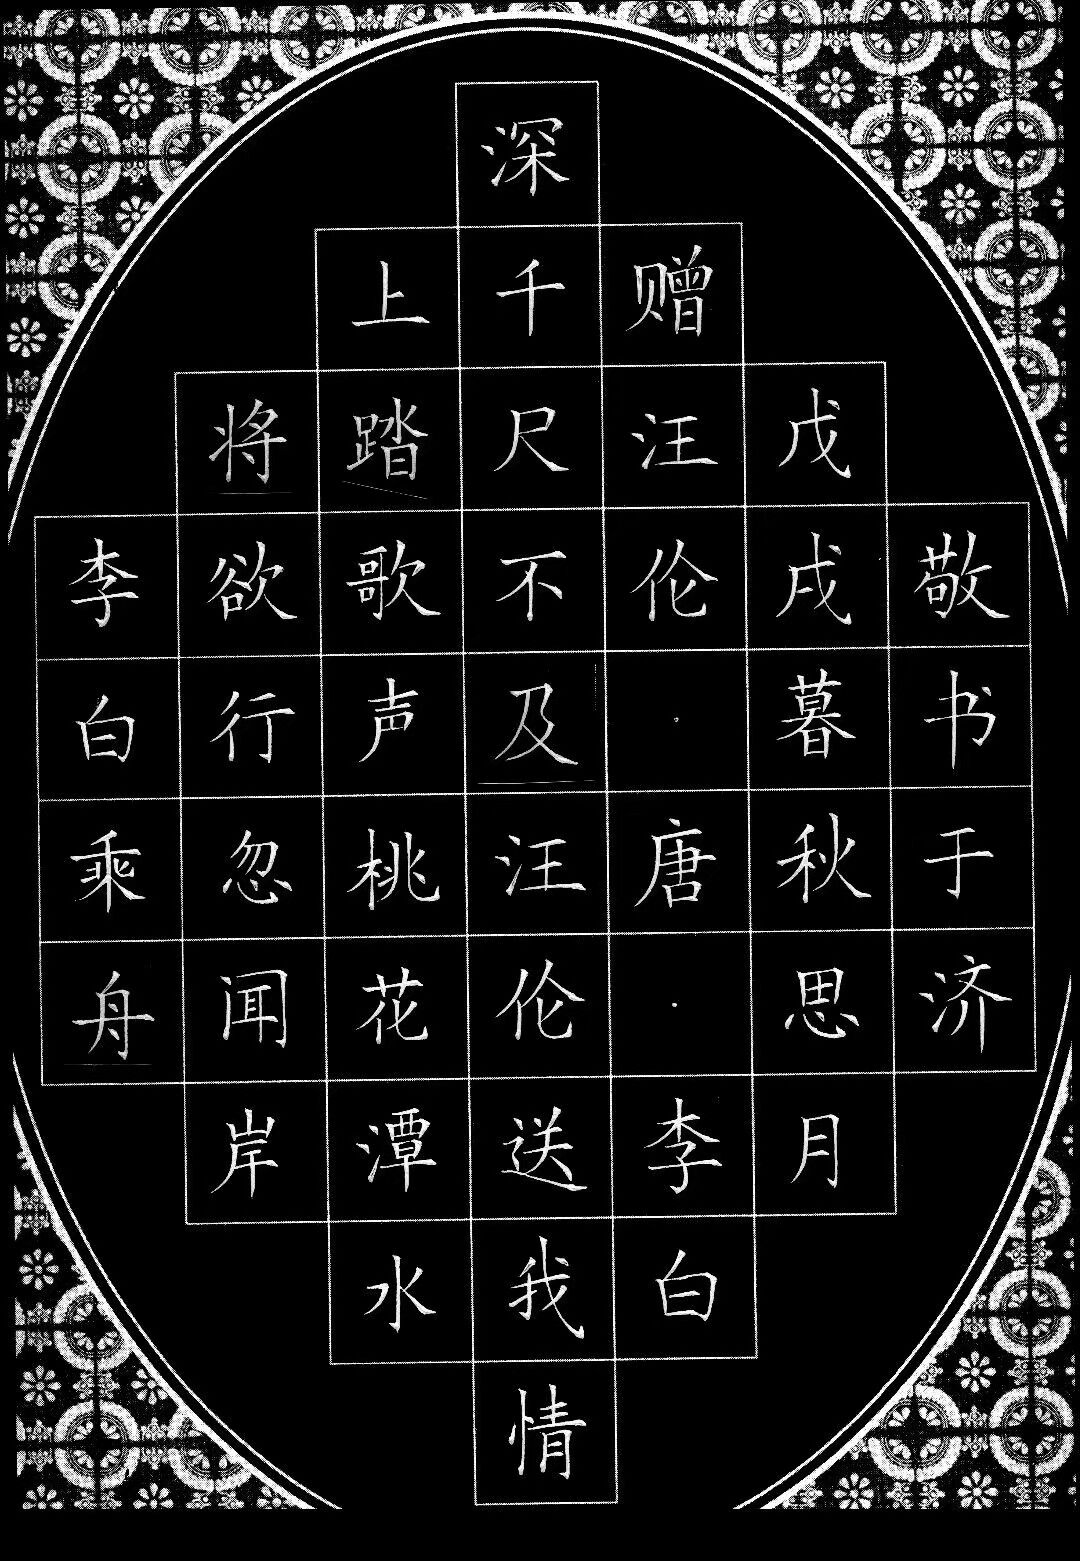 李白乘舟
将欲行忽闻岸
上踏歌声桃花潭水
深千尺不及汪伦送我情
赠汪伦·唐·李白
戊戌暮秋思月
敬书于济